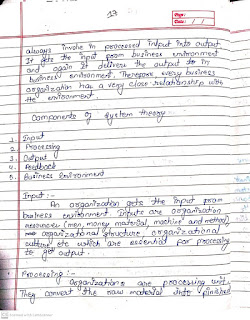 17
Page:
Date: / /
always involve in processed intput into output
It gets the input from business environment
and again it delivers the output to in
business environment. Therefore every business
organization has a very close relationship with
the environment.
Components of system theory
1. Input
2. Processing
3. Output
4. Feedback
5. Business Environment
Input :-
An organization gets the input from
business environment. Inputs are organization
resources (men, money material, machine and method),
organizational structure, organizational
culture etc which are essential for processing
to get output.
Processing :-
Organizations are processing unit.
They convert the raw material into finished